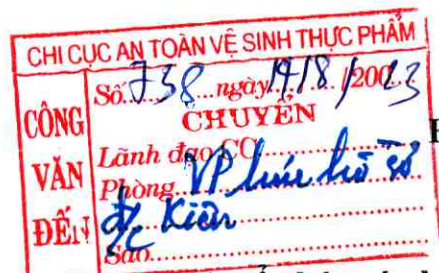 CHI CỤC AN TOÀN VỆ SINH THỰC PHẨM
CÔNG VĂN ĐẾN
Số 738 ngày 14/8/200 23
CHUYỂN
Lãnh đạo CC
Phòng VP lưu hồ sơ
đ/c Kiên
Sao